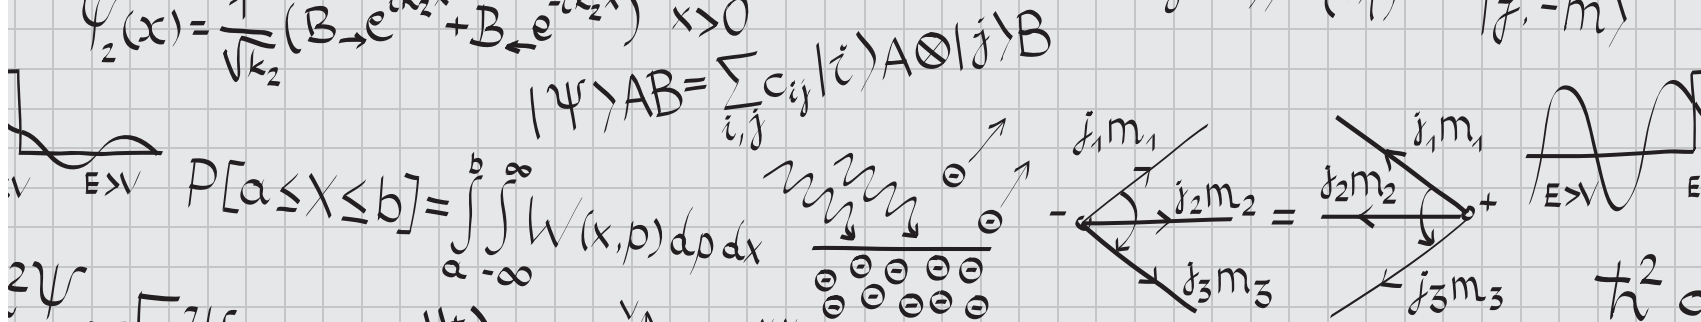 ψ₂(x) = 1/√k₂ (B→e^{ik₂x} + B←e^{-ik₂x}) x>0
|j, -m⟩
|Ψ⟩AB = ∑_{i,j} c_{ij} |i⟩A⊗|j⟩B
E>V
P[a≤X≤b] = ∫_a^b ∫_{-∞}^{∞} W(x,p) dp dx
⊖ ⊖
⊖ ⊖ ⊖ ⊖ ⊖
⊖ ⊖ ⊖ ⊖ ⊖
- j₁m₁ j₂m₂ j₃m₃ = j₁m₁ j₂m₂ j₃m₃ +
E>V
E
2Ψ
ħ²